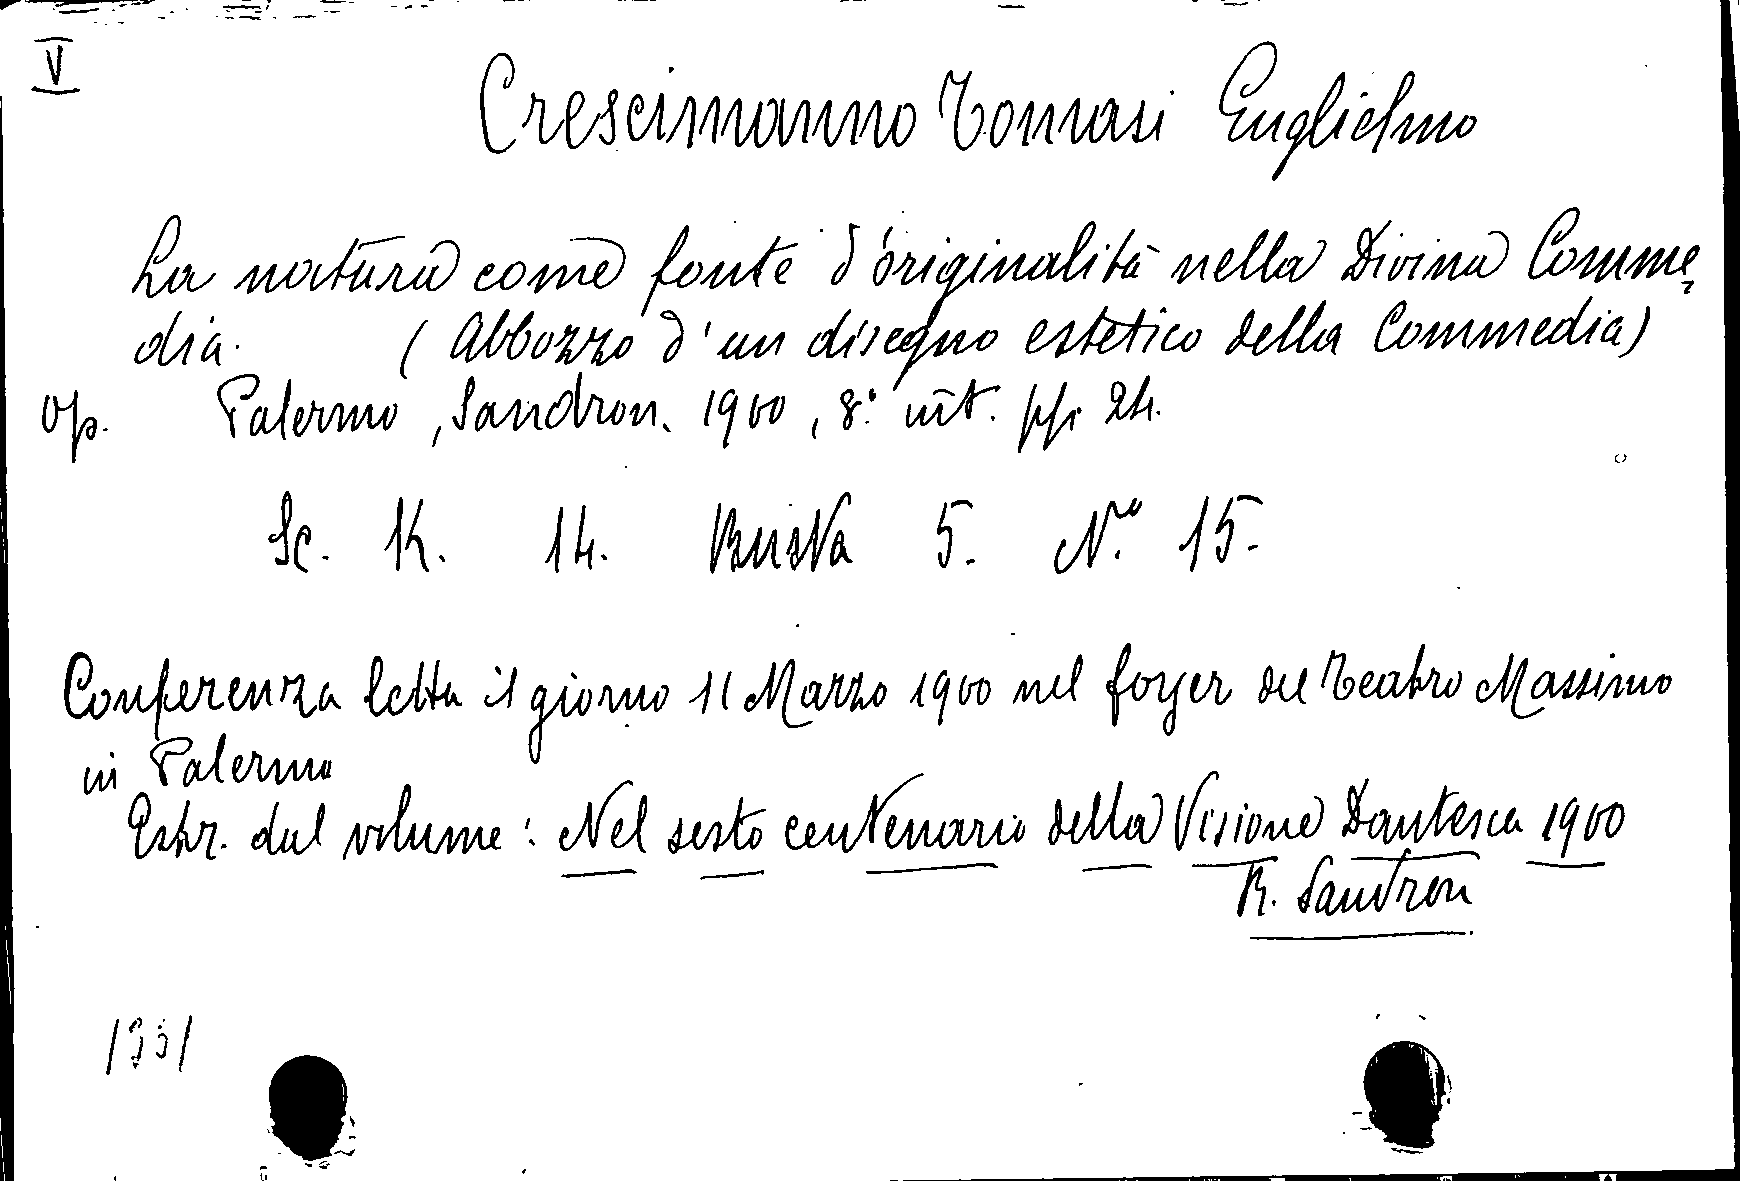 V
Crescimanno Tomasi Guglielmo
La natura come fonte d'originalità nella Divina Comme,
dia. (Abbozzo d'un disegno estetico della Commedia)
Op. Palermo, Sandron. 1900, 8.° int. pp. 24.
Sc. K. 14. Busta 5. N.° 15.
Conferenza letta il giorno 11 Marzo 1900 nel foyer del Teatro Massimo
in Palermo
Estr. dal volume: Nel sesto centenario della Visione Dantesca 1900
R. Sandron